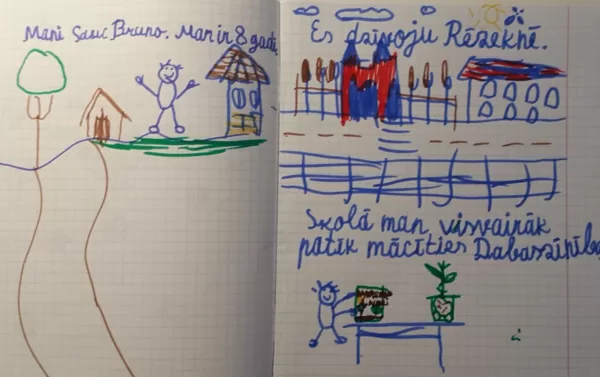 Mani Sauc Bruno. Man ir 8 gadi.
Es dzīvoju Rēzeknē.
Skolā man visvairāk
patīk mācīties Dabaszinība